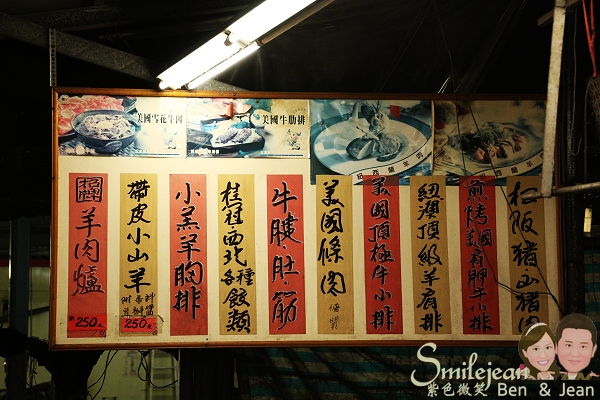 美國雪花牛肉
美國牛肋排
紐西蘭羊肉
招牌
羊肉爐
250元
帶皮小山羊
250元
小羔羊胸排
桂冠·西北各種餃類
牛腱·肚·筋
美國條肉
美國頂級牛小排
紐澳頂級羊肩排
煎烤美國肩胛牛小排
松阪豬·山豬肉
Smilejean
紫色微笑 Ben & Jean